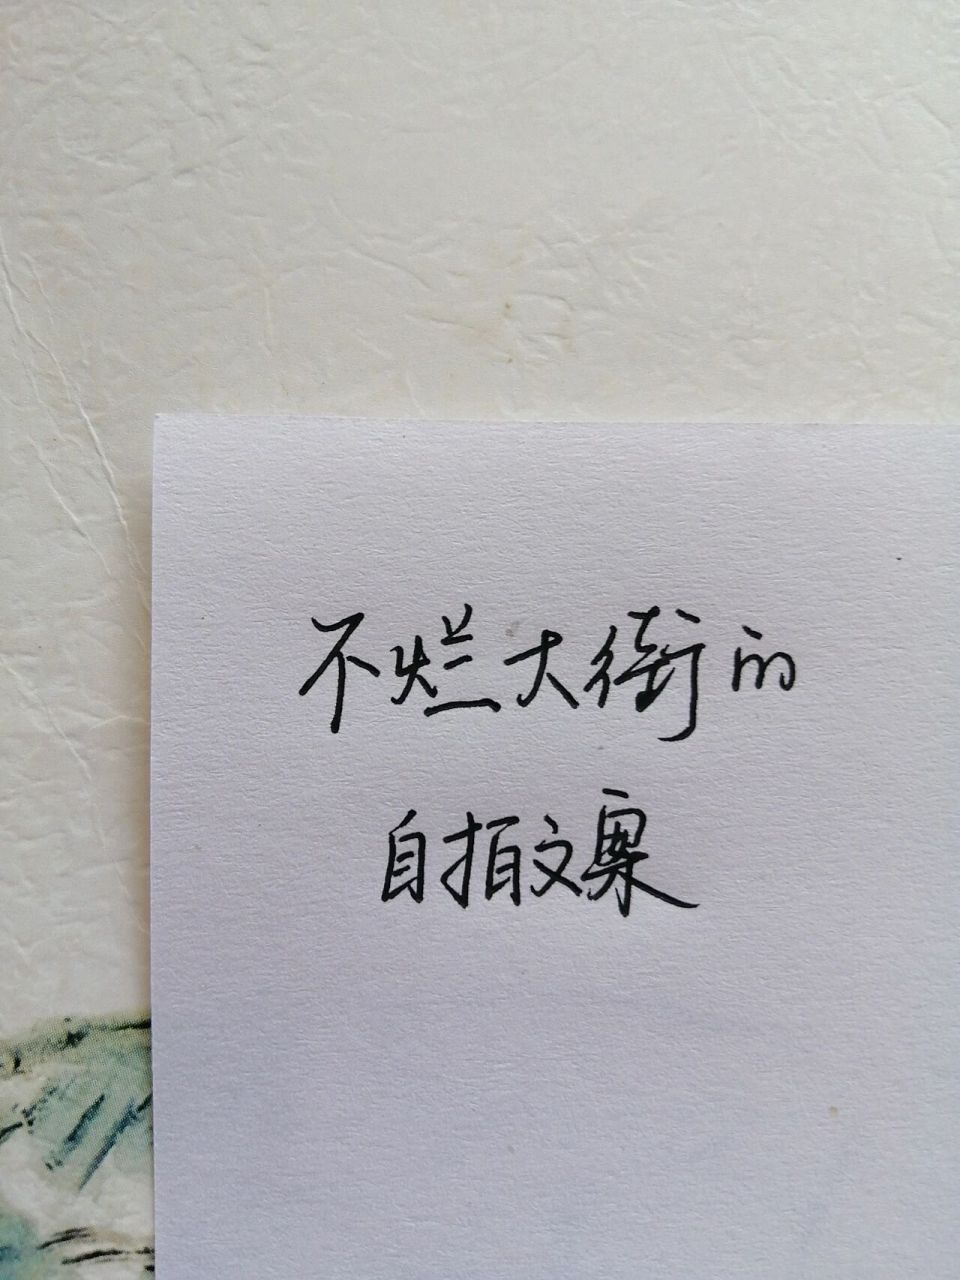 不烂大街的
自拍文案